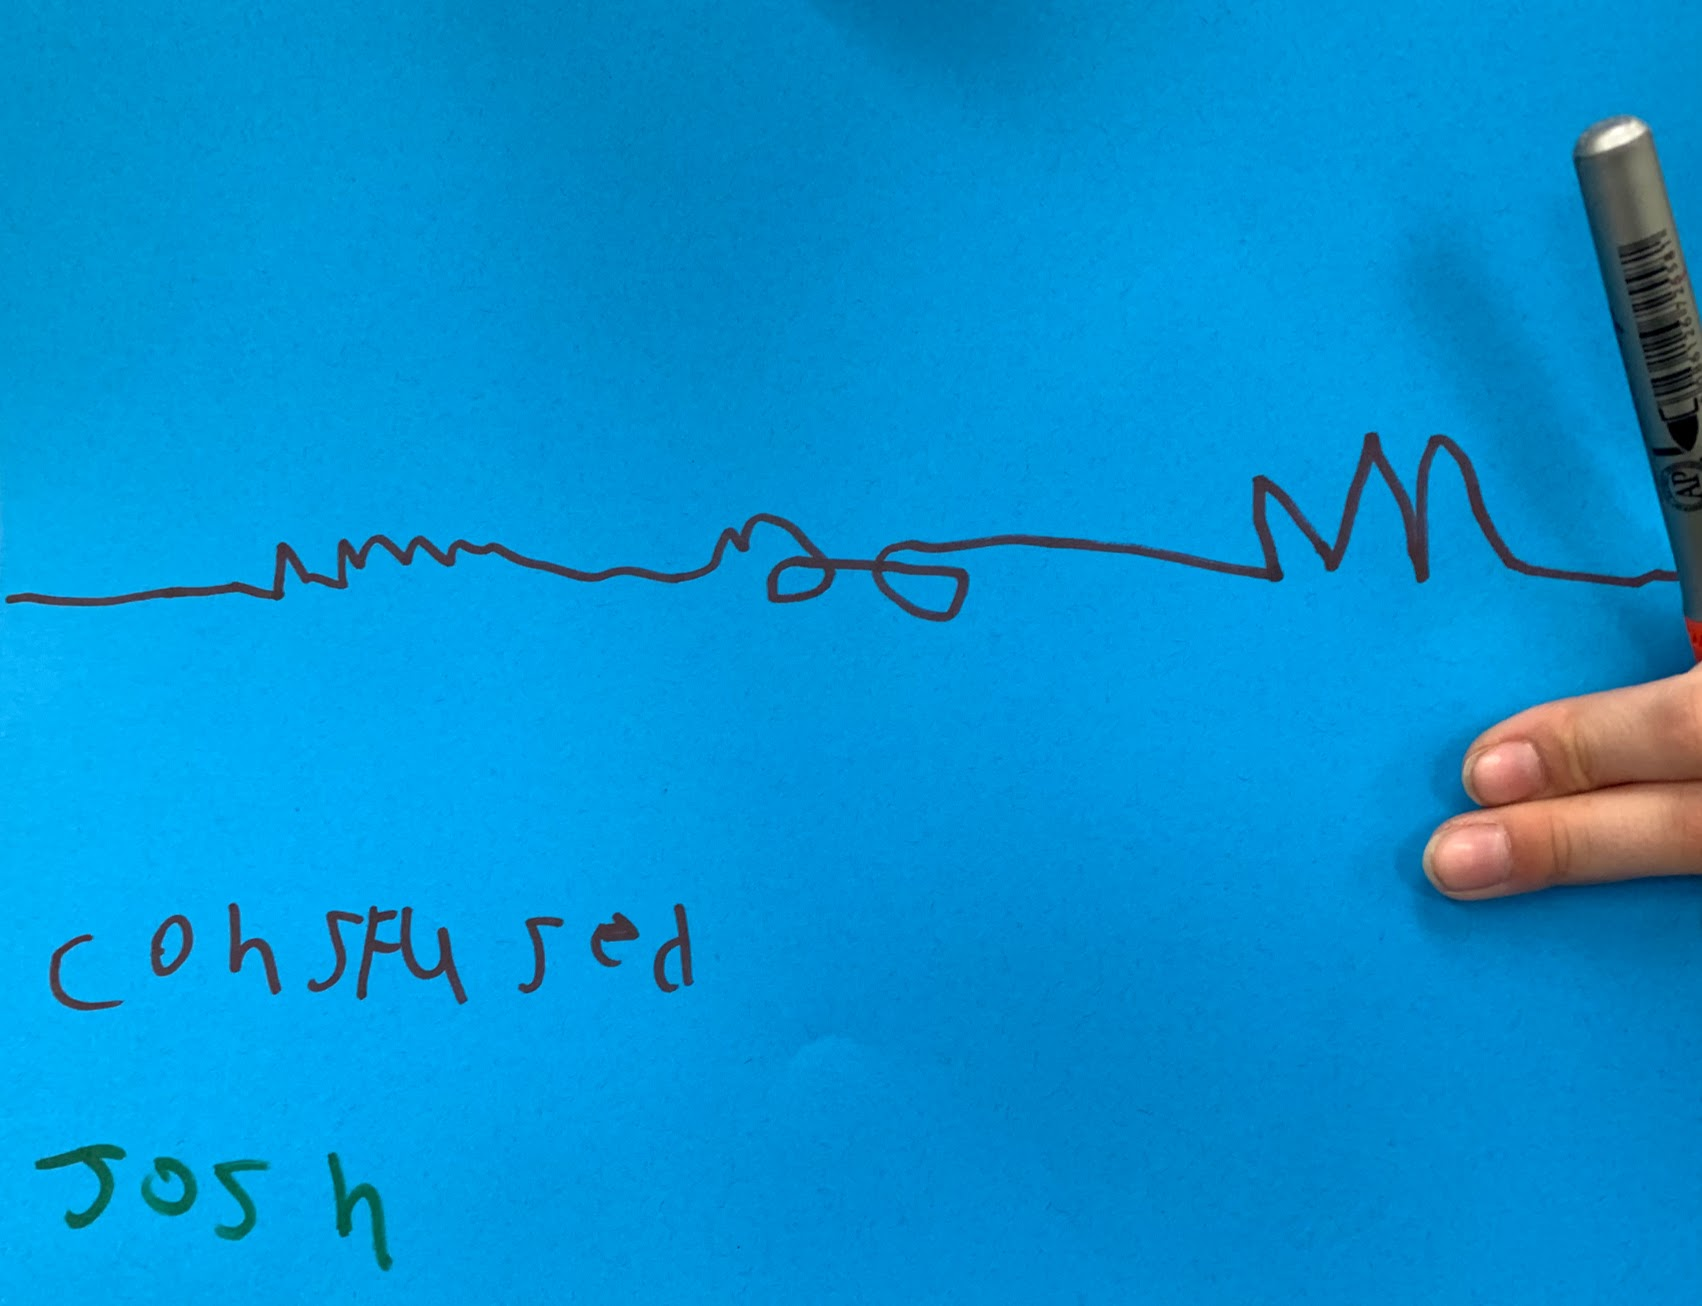 consfused
Josh
AP